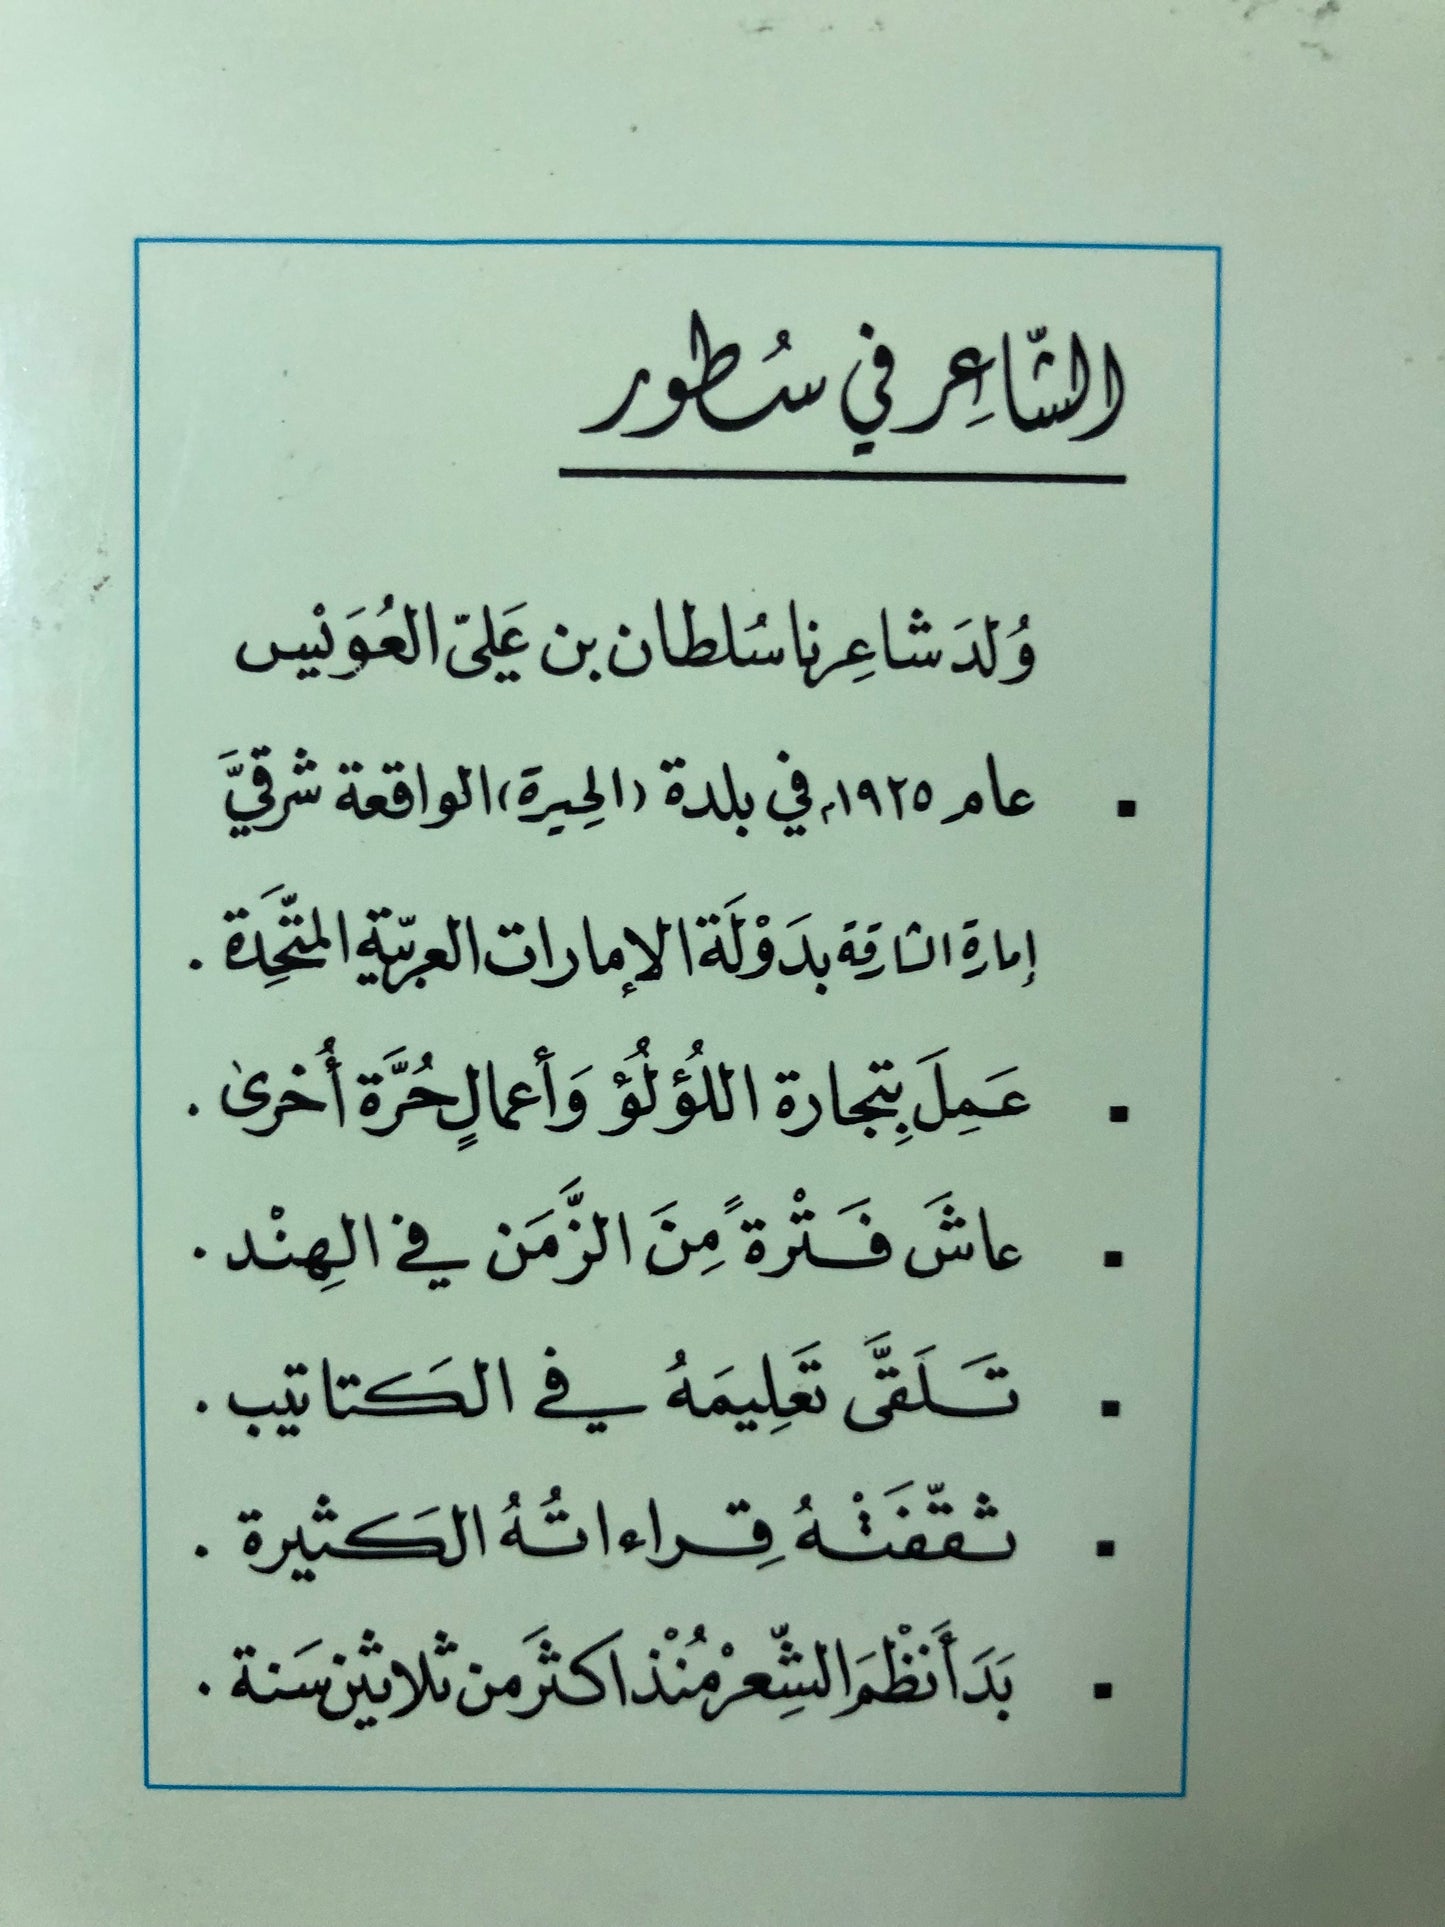 الشّاعِر في سُطور
وُلدَ شاعِرنا سُلطان بن عَليّ العُوَيْس
▪ عام ١٩٢٥م في بلدة (الحِيرة) الواقعة شرقيَّ
إمارة الشارقة بدَوْلَة الإمارات العربيّة المتَّحِدَة .
▪ عَمِلَ بِتِجارة اللُؤلُؤ وَأعمالٍ حُرَّة أُخرىٰ .
▪ عاشَ فَتْرةً مِنَ الزَّمَن في الهِنْد .
▪ تَلَقَّى تَعَلِيمَهُ في الكَتاتيب .
▪ ثقّفَتْهُ قِراءاتُهُ الكَثيرة .
▪ بَدَأ نَظْمَ الشِّعرْ مُنْذ اكثَر من ثلاثين سَنة .